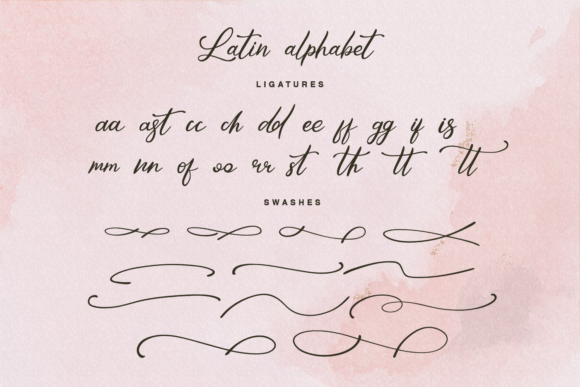 Latin alphabet
LIGATURES
aa ast cc ch dd ee ff gg if is
mm nn of oo rr st th tt tt
SWASHES